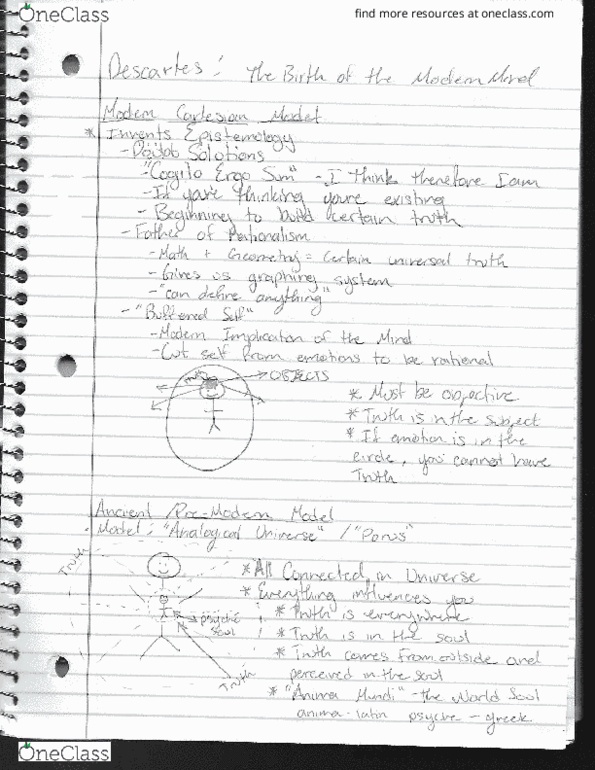 OneClass
find more resources at oneclass.com
Descartes: The Birth of the Modern Mind
Modern Cartesian Model
* Invents Epistemology
- Doubt Solutions
- "Cogito Ergo Sum" - I think therefore I am
- If you're thinking you're existing
- Beginning to build certain truth
- Father of Rationalism
- Math + Geometry = Certain universal truth
- Gives us graphing system
- "can define anything"
- "Buffered Self"
- Modern Implication of the Mind
- Cut self from emotions to be rational
OBJECTS
* Must be objective
* Truth is in the subject
* If emotion is in the
circle, you cannot have
Truth
Ancient / Pre-Modern Model
- Model: "Analogical Universe" / "Porus"
Truth
* All Connected in Universe
* Everything influences you
* Truth is everywhere
psychic
soul
* Truth is in the soul
* Truth comes from outside and
perceived in the soul
Truth
* "Anima Mundi" - the World Soul
anima - latin psyche - greek
OneClass